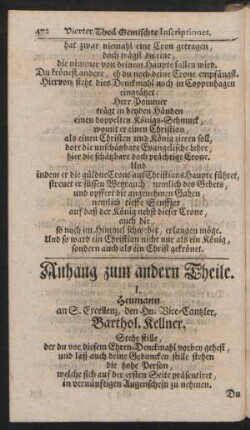 472 Vierter Theil Gemischte Inscriptiones.
hat zwar niemahl eine Cron getragen,
doch trägst du eine,
die nimmer von deinem Haupte fallen wird.
Du krönest andere, eh du noch deine Crone empfängst.
Hiervon steht dies Denckmahl noch in Coppenhagen
eingeätzet:
Herr Pommer
trägt in beyden Händen
einen doppelten Königs-Schmuck,
womit er einen Christian,
als einen Christen und König zieren soll,
dort die unschätzbare Evangelische Lehre,
hier die schätzbare doch prächtige Crone.
Und
indem er die güldne Crone auf Christians Haupte führet,
streuet er süssen Weyrauch, nemlich des Gebets,
und opffert die angenehmen Gaben,
nemlich tieffe Seuffzer,
auf daß der König nebst dieser Crone,
auch die,
so noch im Himmel schwebet, erlangen möge.
Und so ward ein Christian nicht nur als ein König,
sondern auch als ein Christ gekrönet.
Anhang zum andern Theile.
I.
Heumann
an S. Excellenz, den Hn. Vice-Cantzler,
Barthol. Kellner.
Stehe stille,
der du vor diesem Ehren-Denckmahl vorbey gehest,
und laß auch deine Gedancken stille stehen
die hohe Person,
welche sich auf der ersten Seite präsentiret,
in vernünfftigen Augenschein zu nehmen.
Du